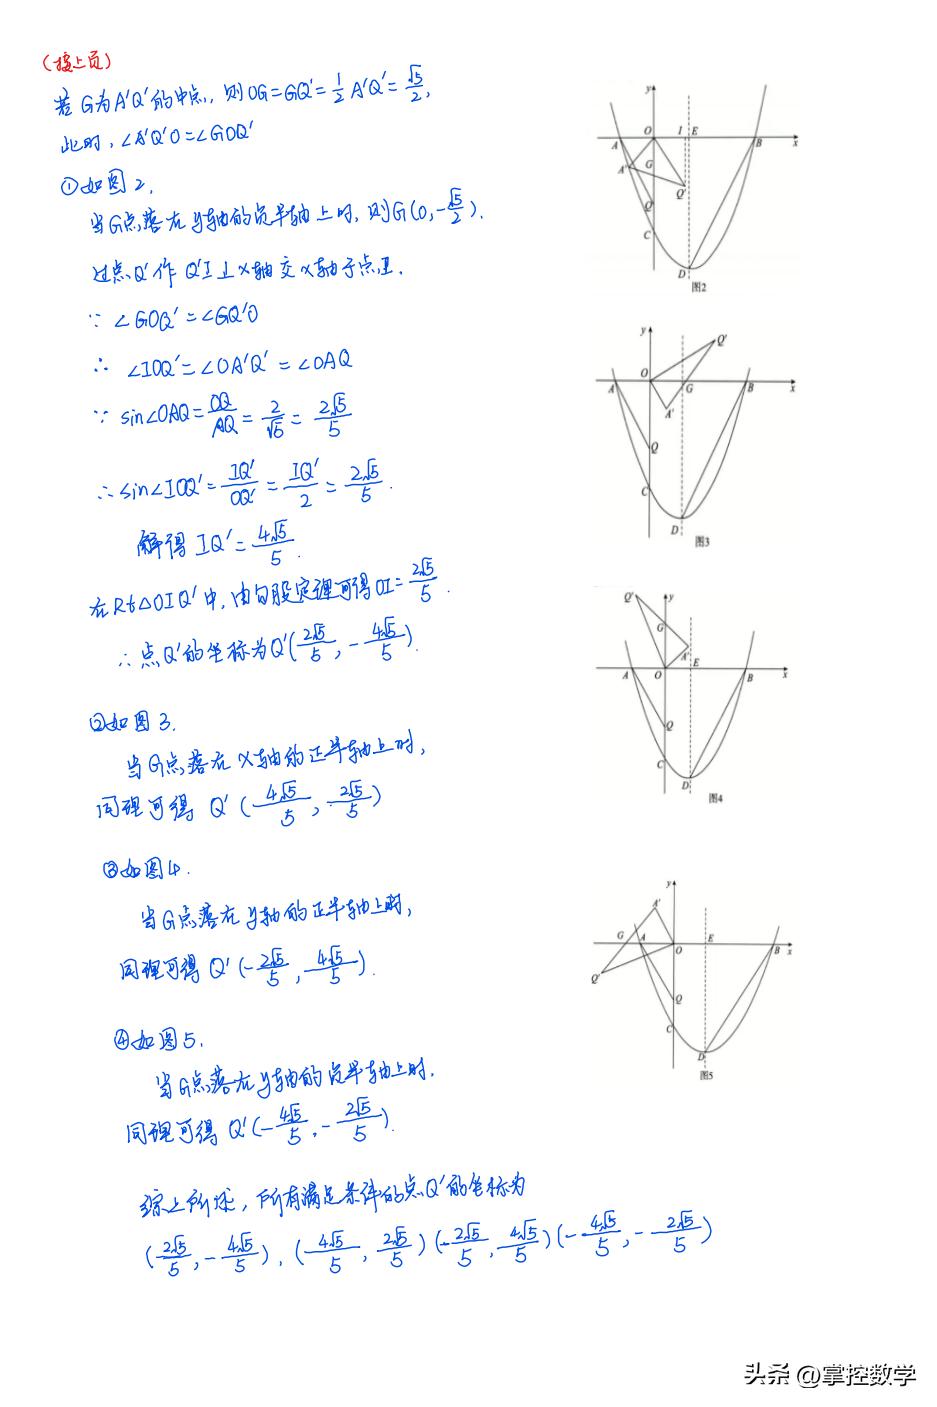 (接上页)
若G为A'Q'的中点，则OG=GQ'=\frac{1}{2}A'Q'=\frac{\sqrt{5}}{2},
此时，∠A'Q'O=∠GOQ'
①如图2,
当G点落在y轴的负半轴上时，则G(0,-\frac{\sqrt{5}}{2}).
过点Q'作Q'I⊥x轴交x轴于点I.
∵ ∠GOQ'=∠GQ'O
∴ ∠IOQ'=∠OA'Q'=∠OAQ
∵ sin∠OAQ=\frac{OQ}{AQ}=\frac{2}{\sqrt{5}}=\frac{2\sqrt{5}}{5}
∴ sin∠IOQ'=\frac{IQ'}{OQ'}=\frac{IQ'}{2}=\frac{2\sqrt{5}}{5}.
解得 IQ'=\frac{4\sqrt{5}}{5}.
在Rt△OIQ'中,由勾股定理可得OI=\frac{2\sqrt{5}}{5}.
∴点Q'的坐标为Q'(\frac{2\sqrt{5}}{5},-\frac{4\sqrt{5}}{5}).
②如图3.
当G点落在x轴的正半轴上时,
同理可得 Q'(\frac{4\sqrt{5}}{5},\frac{2\sqrt{5}}{5})
③如图4.
当G点落在y轴的正半轴上时,
同理可得Q'(-\frac{2\sqrt{5}}{5},\frac{4\sqrt{5}}{5}).
④如图5.
当G点落在y轴的负半轴上时.
同理可得 Q'(-\frac{4\sqrt{5}}{5},-\frac{2\sqrt{5}}{5}).
综上所述,所有满足条件的点Q'的坐标为
(\frac{2\sqrt{5}}{5},-\frac{4\sqrt{5}}{5}),(\frac{4\sqrt{5}}{5},\frac{2\sqrt{5}}{5})(-\frac{2\sqrt{5}}{5},\frac{4\sqrt{5}}{5})(-\frac{4\sqrt{5}}{5},-\frac{2\sqrt{5}}{5})
y
O I E
A B x
A' G
Q'
Q
C
D
图2
y
Q'
O
A G B x
A'
Q
C
D
图3
Q' y
G
A'
A O E B x
Q
C
D
图4
y
A'
G A E
O B x
Q'
Q
C
D
图5
头条 @掌控数学